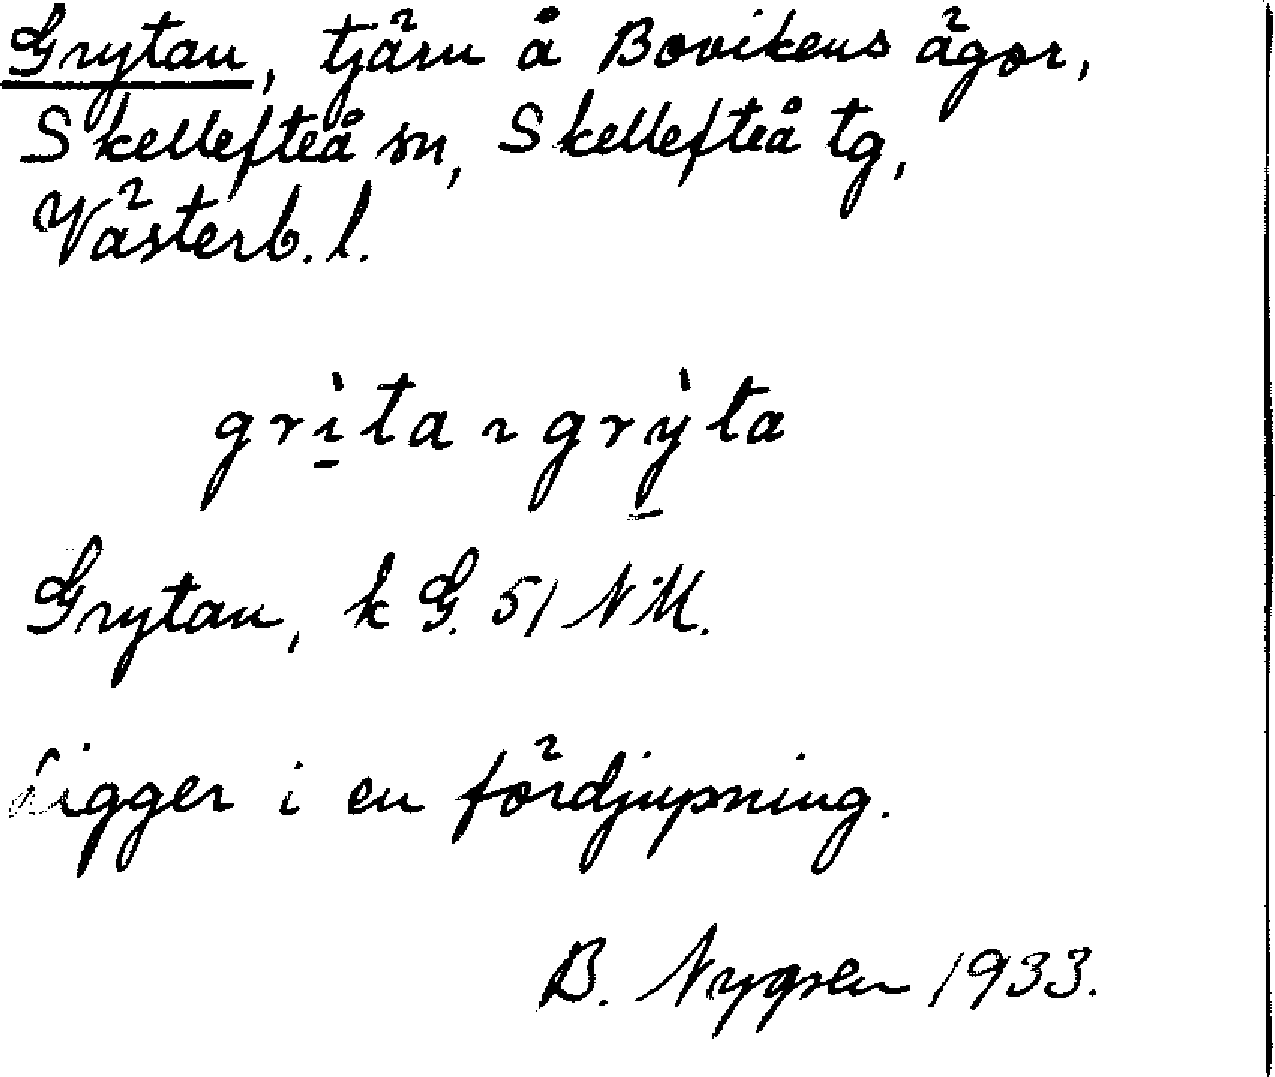 Grytan, tjärn å Bovikens ägor,
Skellefteå sn, Skellefteå tg,
Västerb. l.
grì̱ta ~ grỳ̱ta
Grytan, k G. 51 NM.
Ligger i en fördjupning.
B. 1933.